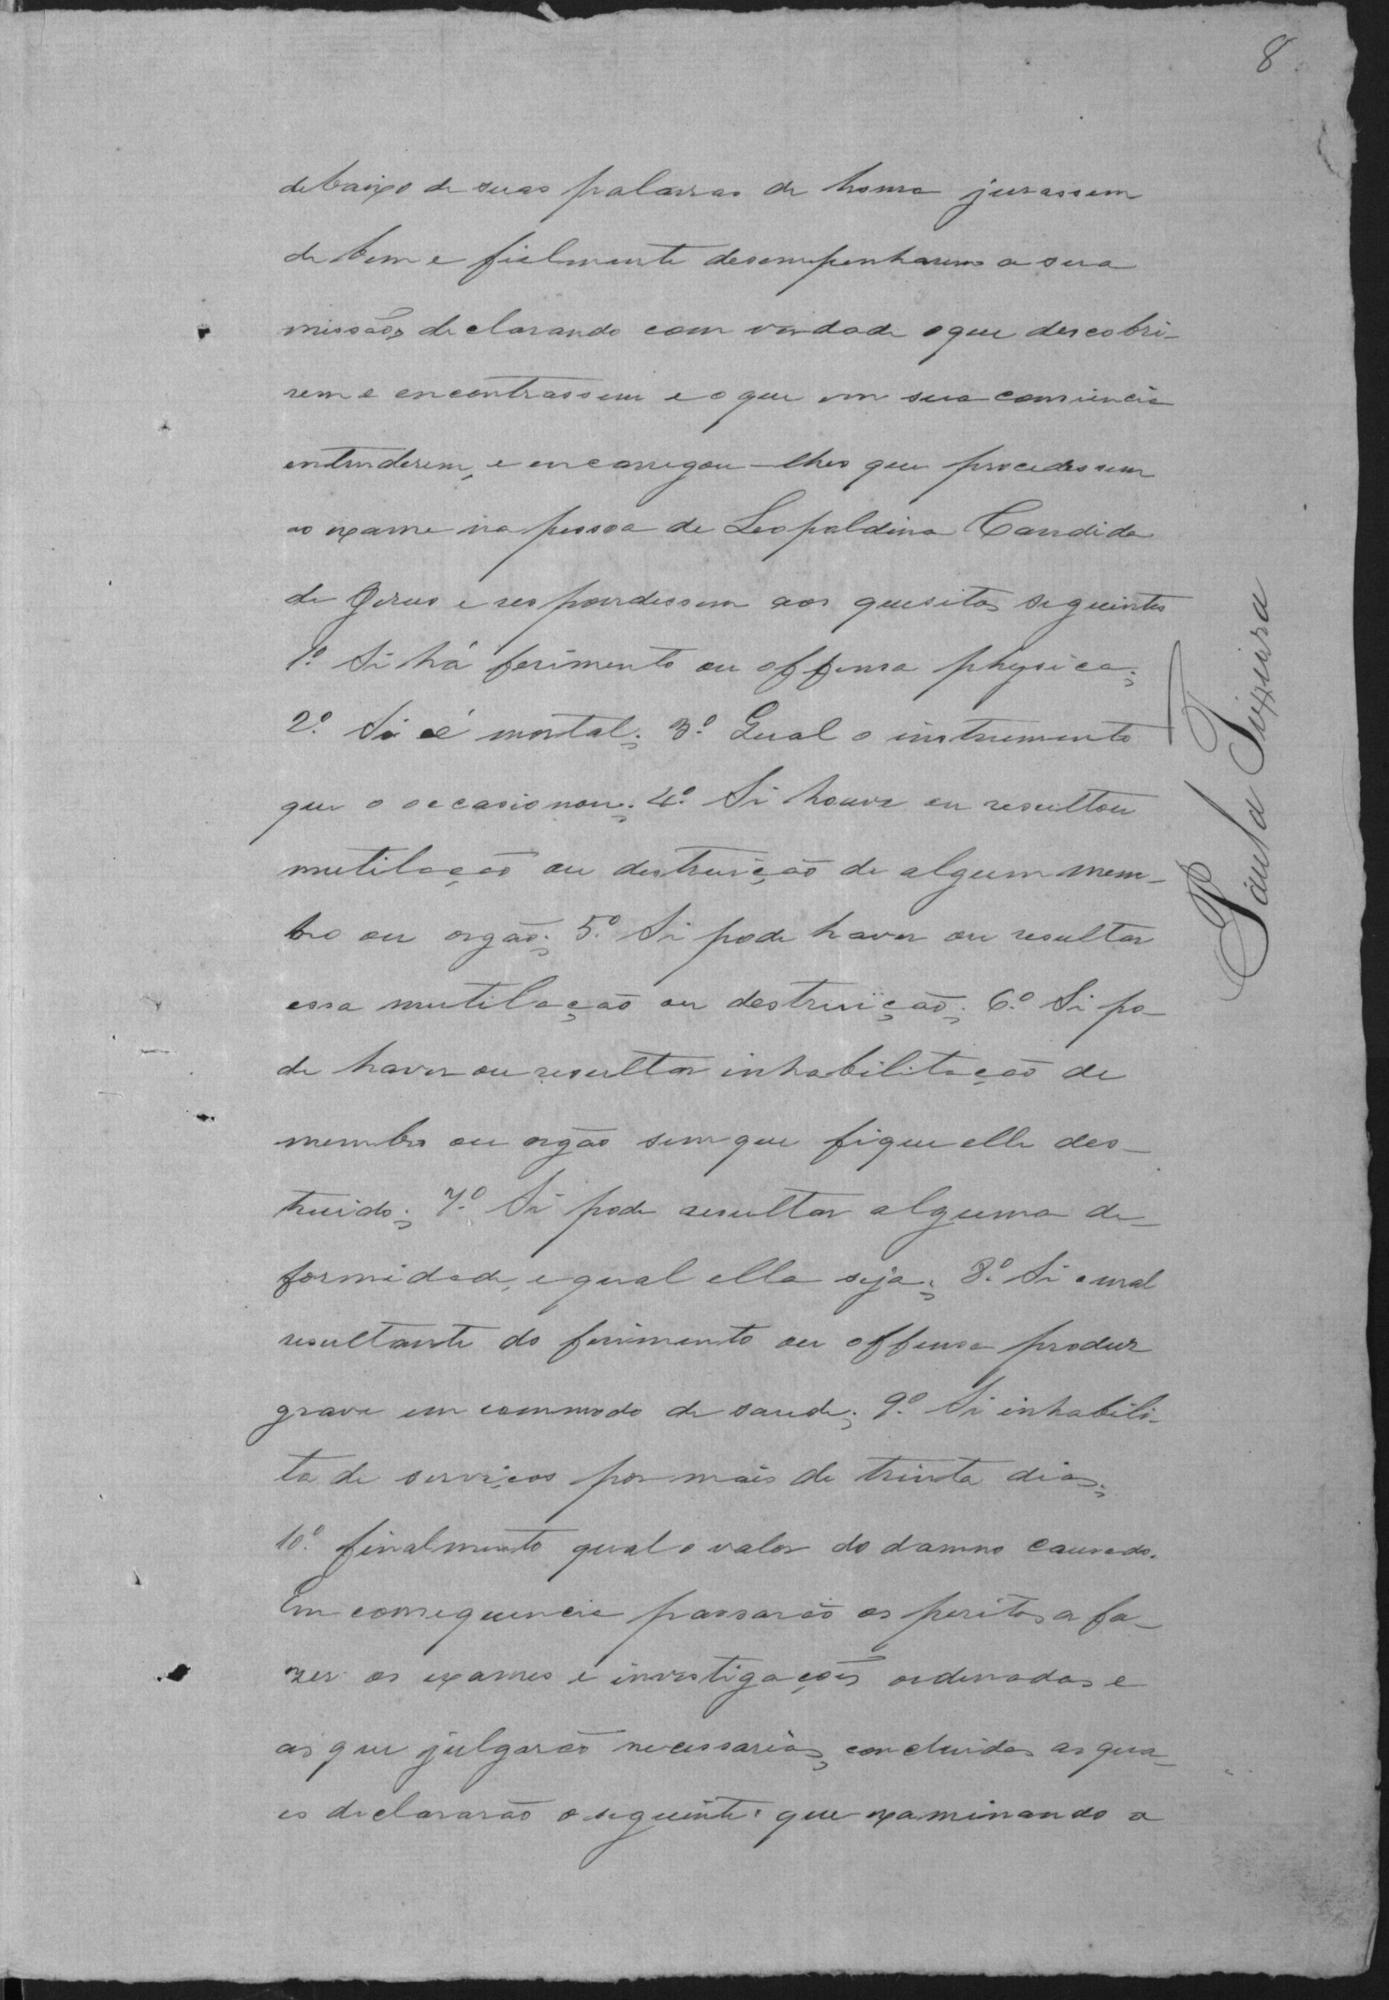 8
debaixo de suas palavras de honra jurassem
de bem e fielmente desempenharem a sua
missão, declarando com verdade o que descobri-
rem e encontrassem e o que em sua consciencia
entenderem, e encarregou-lhes que procedessem
ao exame na pessoa de Leopoldina Candida
de Jesus e respondessem aos quesitos seguintes
1º Si há ferimento ou offensa physica;
2º Si é mortal; 3º Qual o instrumento
que o occasionou; 4º Si houve ou resultou
mutilação ou destruição de algum mem-
bro ou orgão; 5º Si pode haver ou resultar
essa mutilação ou destruição; 6º Si po-
de haver ou resultar inhabilitação de
membro ou orgão sem que fique elle des-
truido; 7º Si pode resultar alguma de-
formidade, e qual ella seja; 8º Si o mal
resultante do ferimento ou offensa produz
grave incommodo de saude; 9º Si inhabili-
ta de serviços por mais de trinta dias;
10º finalmente qual o valor do damno causado.
Em consequencia passarão os peritos a fa-
zer os exames e investigações ordenadas e
as que julgarão necessarias, concluidas as qua-
es declararão o seguinte: que examinando a
Paula Teixeira